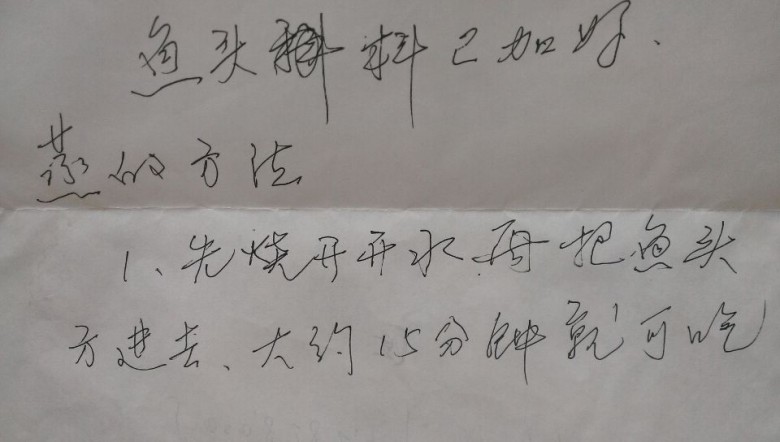 鱼头料已加好.
蒸的方法
1、先烧开开水.再把鱼头
方进去、大约15分钟就可吃